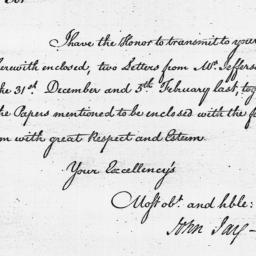 I have the Honor to transmit to your
herewith enclosed, two Letters from Mr. Jefferso
he 31st. December and 3th. February last, tog
he Papers mentioned to be enclosed with the f
m with great Respect and Esteem
Your Excellency's
Most obt. and hble:
John Jay